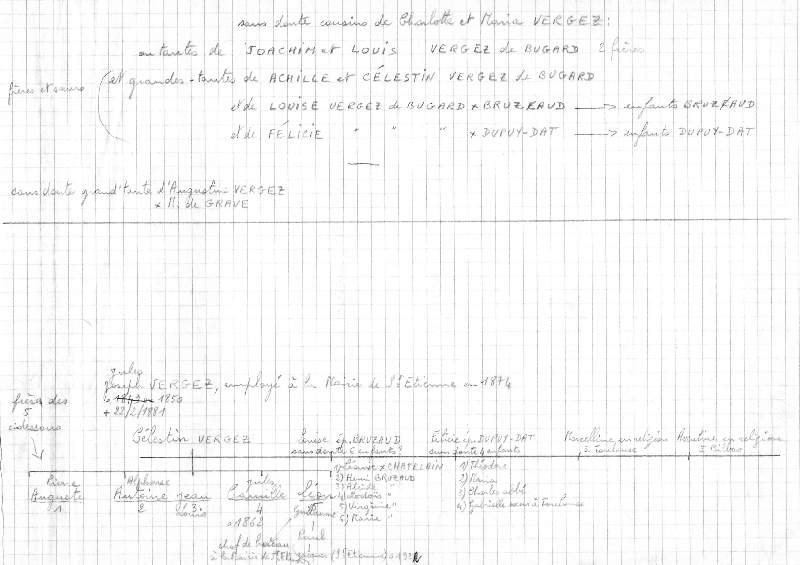 sans doute cousins de Charlotte et Maria VERGEZ :
ou tantes de JOACHIM et LOUIS VERGEZ de BUGARD 2 frères
frères et sœurs
et grandes-tantes de ACHILLE et CÉLESTIN VERGEZ de BUGARD
et de LOUISE VERGEZ de BUGARD x BRUZEAUD → enfants BRUZEAUD
et de FÉLICIE " " " x DUPUY-DAT → enfants DUPUY-DAT
sans doute grand'tante d'Augustine VERGEZ
x M. de GRAVE
Jules
Joseph VERGEZ, employé à la Mairie de St Etienne en 1874
° 1849 1850
+ 22/2/1881
frère des
5
cidessous
Célestin VERGEZ
Louise ép. BRUZAUD
sans dopte 6 enfants ?
ép. DUPUY-DAT
4 enfants
Marcelline en religion
à Toulouse
en religion
à
Pierre
Auguste
1
Alphonse
Antoine
2
Jean
3
Louis
Jules
Camille
4
° 1862
chef de bureau
à la Mairie de St Et.
Léon
5
Guillaume
Paul
(St Etienne)
1) x CHATELAIN
2) Henri BRUZAUD
3) Alcide "
4) "
5) Virginie "
6) Marie "
1) Théodore
2)
3) Charles abbé
4) Gabrielle à Toulouse